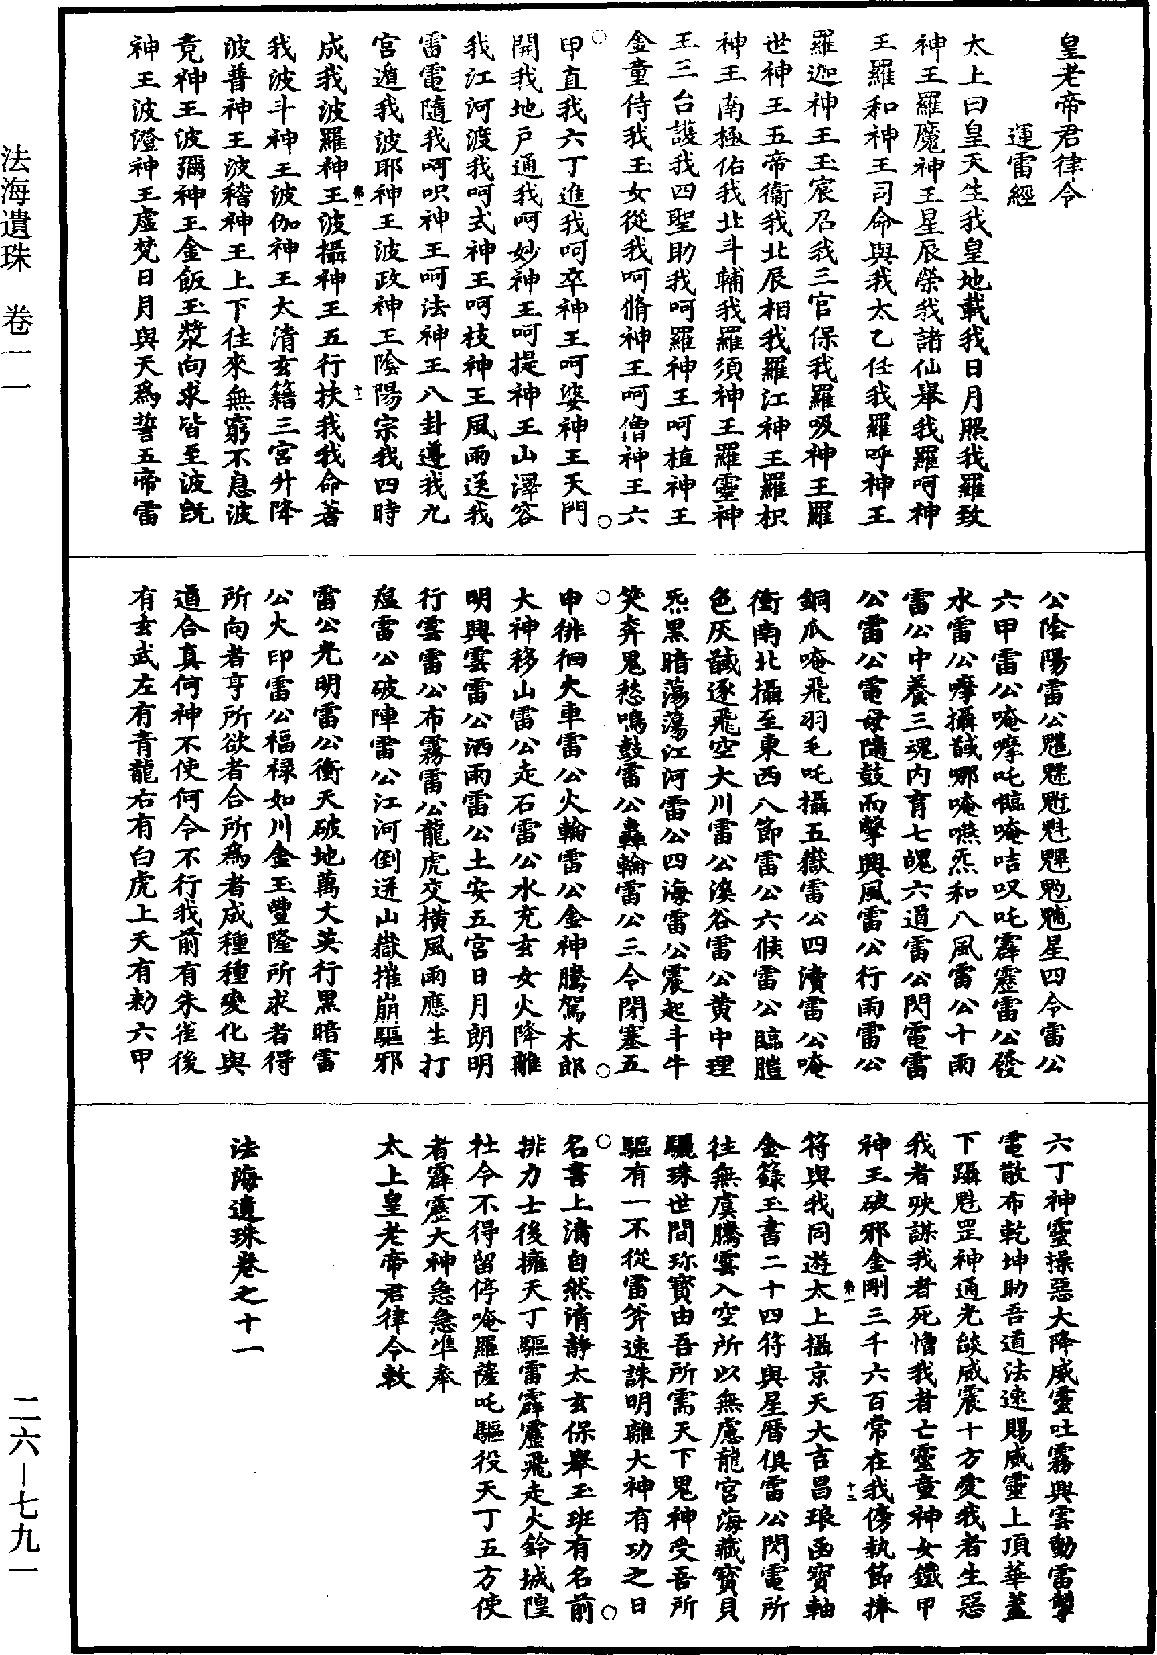 皇老帝君律令
運雷經
太上曰皇天生我皇地載我日月照我羅致
神王羅魔神王星辰榮我諸仙舉我羅呵神
王羅和神王司命與我太乙任我羅呼神王
羅迦神王玉宸召我三官保我羅吸神王羅
世神王五帝衛我北辰相我羅江神王羅枳
神王南極佑我北斗輔我羅須神王羅靈神
王三台護我四聖助我呵羅神王呵植神王
金童侍我玉女從我呵脩神王呵僧神王六
甲直我六丁進我呵卒神王呵婆神王天門
開我地戶通我呵妙神王呵提神王山澤容
我江河渡我呵式神王呵枝神王風雨送我
雷電隨我呵呎神王呵法神王八卦遵我九
宮遁我波耶神王波政神王陰陽宗我四時
成我波羅神王波攝神王五行扶我我命著
我波斗神王波伽神王太清玄籍三宮升降
波普神王波稽神王上下往來無窮不息波
竟神王波彌神王金飯玉漿向求皆至波既
神王波澄神王虛梵日月與天為誓五帝雷
公陰陽雷公魒魓星四令雷公
六甲雷公唵摩吒唵咭叹吒霹靂雷公發
水雷公摩攝哪唵嚥炁和八風雷公十雨
雷公中養三魂內育七魄六道雷公閃電雷
公雷公電母隨鼓而擊興風雷公行雨雷公
銅爪唵飛羽毛吒攝五嶽雷公四瀆雷公唵
衝南北攝至東西八節雷公六候雷公臨
色灰逐飛空大川雷公溪谷雷公黄中理
炁黑暗蕩蕩江河雷公四海雷公震起斗牛
笑奔鬼愁鳴鼓雷公轟輪雷公三令閉塞五
申徘徊火車雷公火輪雷公金神騰駕木郎
大神移山雷公走石雷公水充玄女火降離
明興雲雷公洒雨雷公土安五宮日月朗明
行雲雷公布霧雷公龍虎交橫風雨應生打
瘟雷公破陣雷公江河倒逆山嶽摧崩驅邪
雷公光明雷公衝天破地萬丈英行黑暗雷
公火印雷公福祿如川金玉豐隆所求者得
所向者亨所欲者合所為者成種種變化與
道合真何神不使何令不行我前有朱雀後
有玄武左有青龍右有白虎上天有勑六甲
六丁神靈操惡大降威靈吐霧興雲動雷擊
電散布乾坤助吾道法速賜威靈上頂華蓋
下躡魁罡神通光燄威震十方愛我者生惡
我者殃謀我者死憎我者亡靈童神女鐵甲
神王破邪金剛三千六百常在我傍執節捧
符與我同遊太上攝京天大吉昌琅函寶軸
金籙玉書二十四符與星曆俱雷公閃電所
往無虞騰雲入空所以無慮龍宮海藏寶貝
驪珠世間珍寶由吾所需天下鬼神受吾所
驅有一不從雷斧速誅明離大神有功之日
名書上清自然清靜太玄保舉玉班有名前
排力士後擁天丁驅雷霹靂飛走火鈴城隍
社令不得留停唵羅薩吒驅役天丁五方使
者霹靂大神急急準奉
太上皇老帝君律令敕
法海遺珠卷之十一
法海遺珠 卷一一
二六—七九一